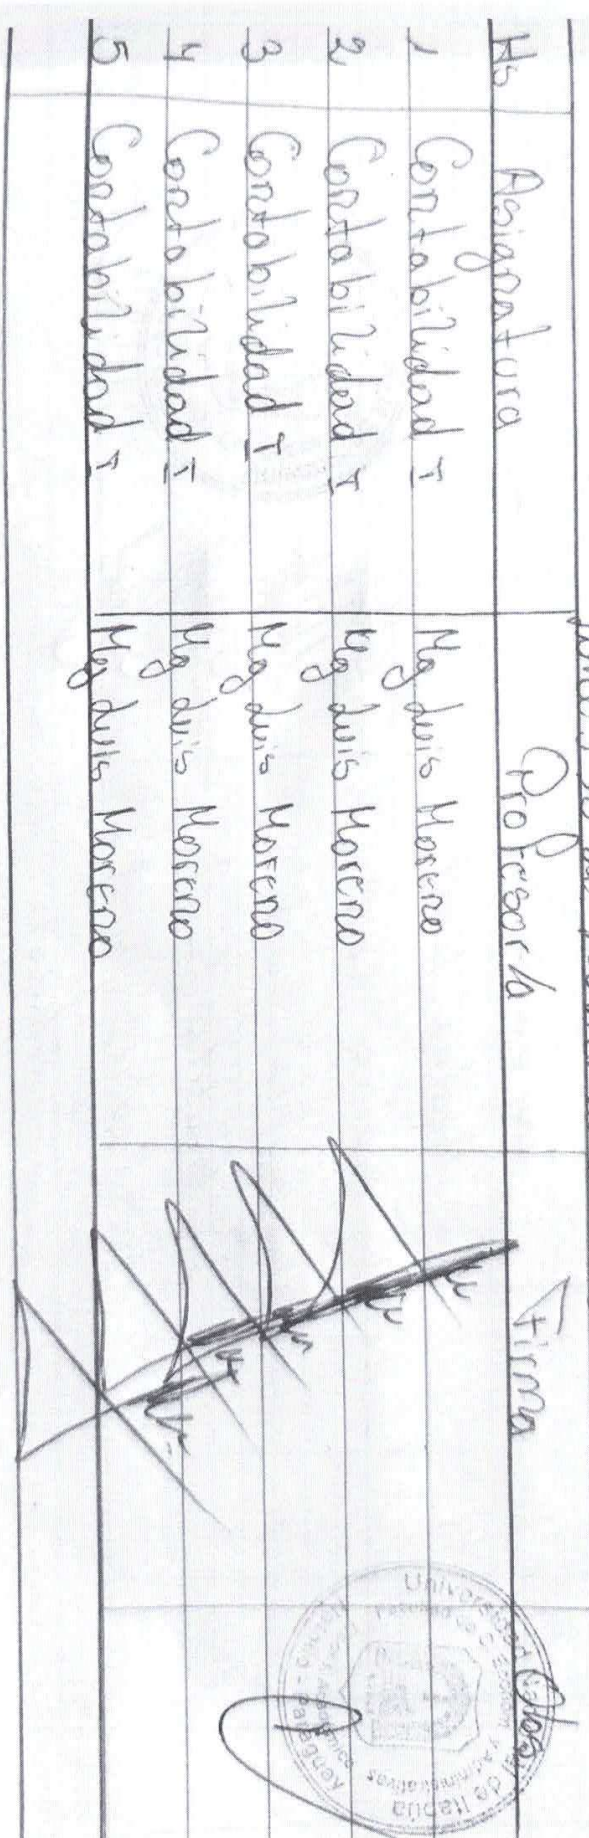 Hs Asignatura Profesor/a Firma Obs
1 Contabilidad I Mg Luis Moreno
2 Contabilidad I Mg Luis Moreno
3 Contabilidad I Mg Luis Moreno
4 Contabilidad I Mg Luis Moreno
5 Contabilidad I Mg Luis Moreno
Universidad de Itapúa
y Administrativas